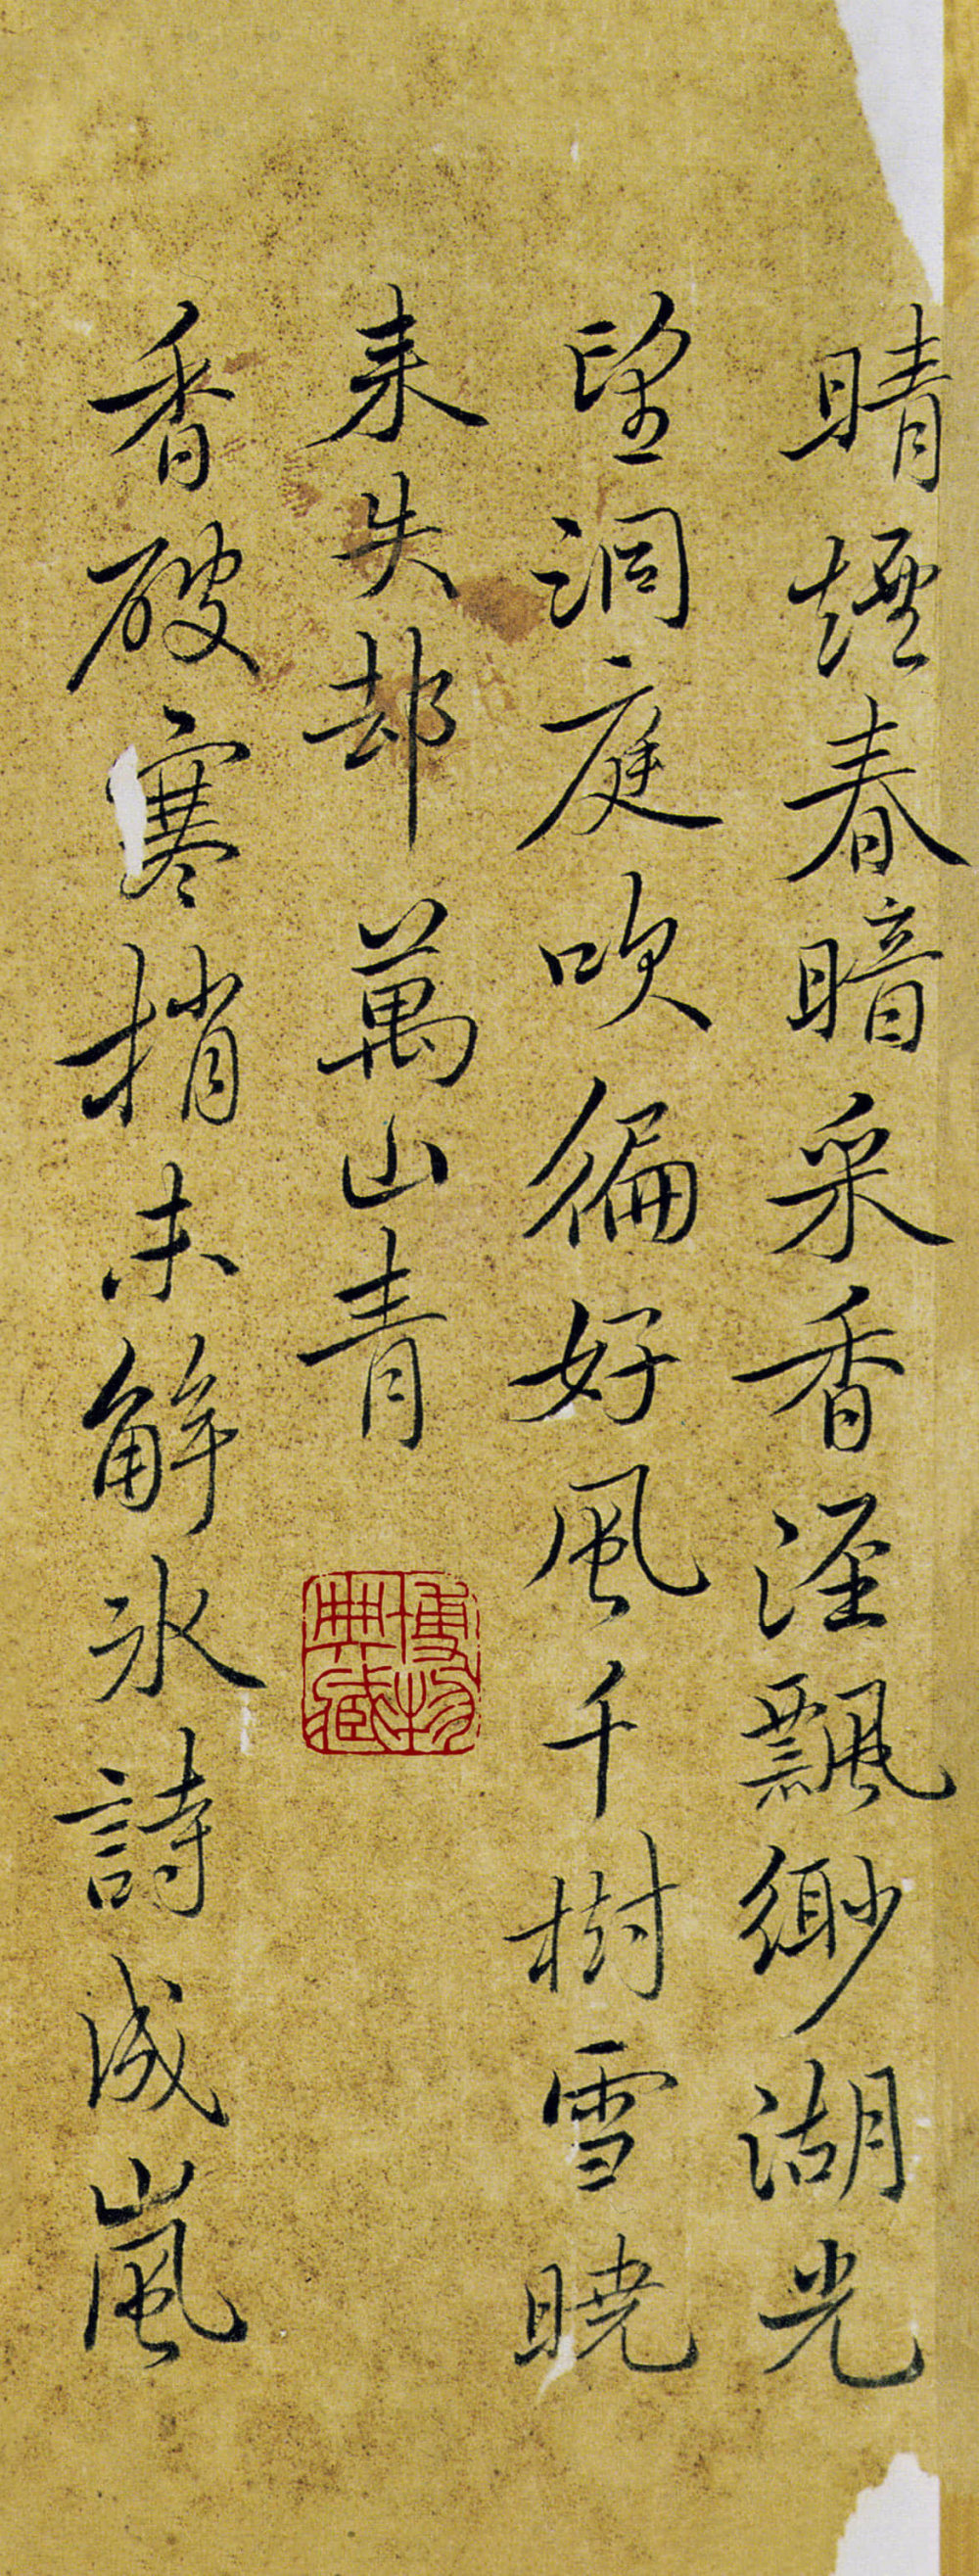 晴煙春暗采香涇飄緲湖光
望洞庭吹徧好風千樹雪曉
来失却萬山青
博物
典藏
香破寒梢未解氷詩成嵐